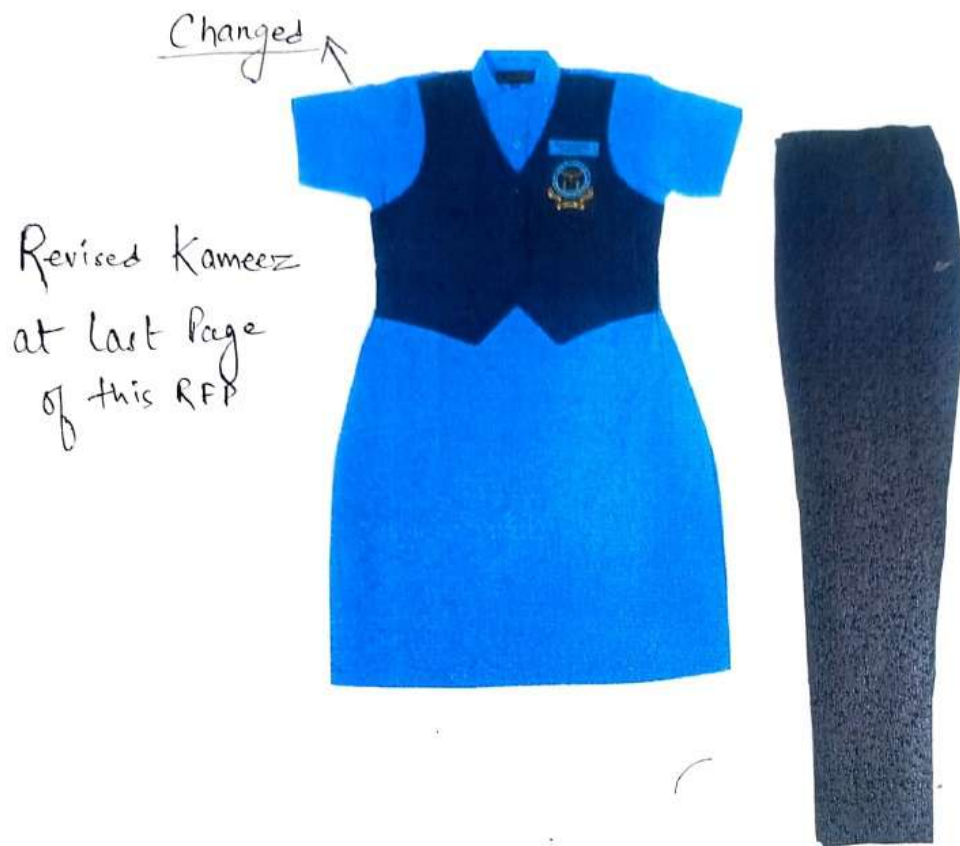 Changed
Revised Kameez
at Last Page
of this RFP